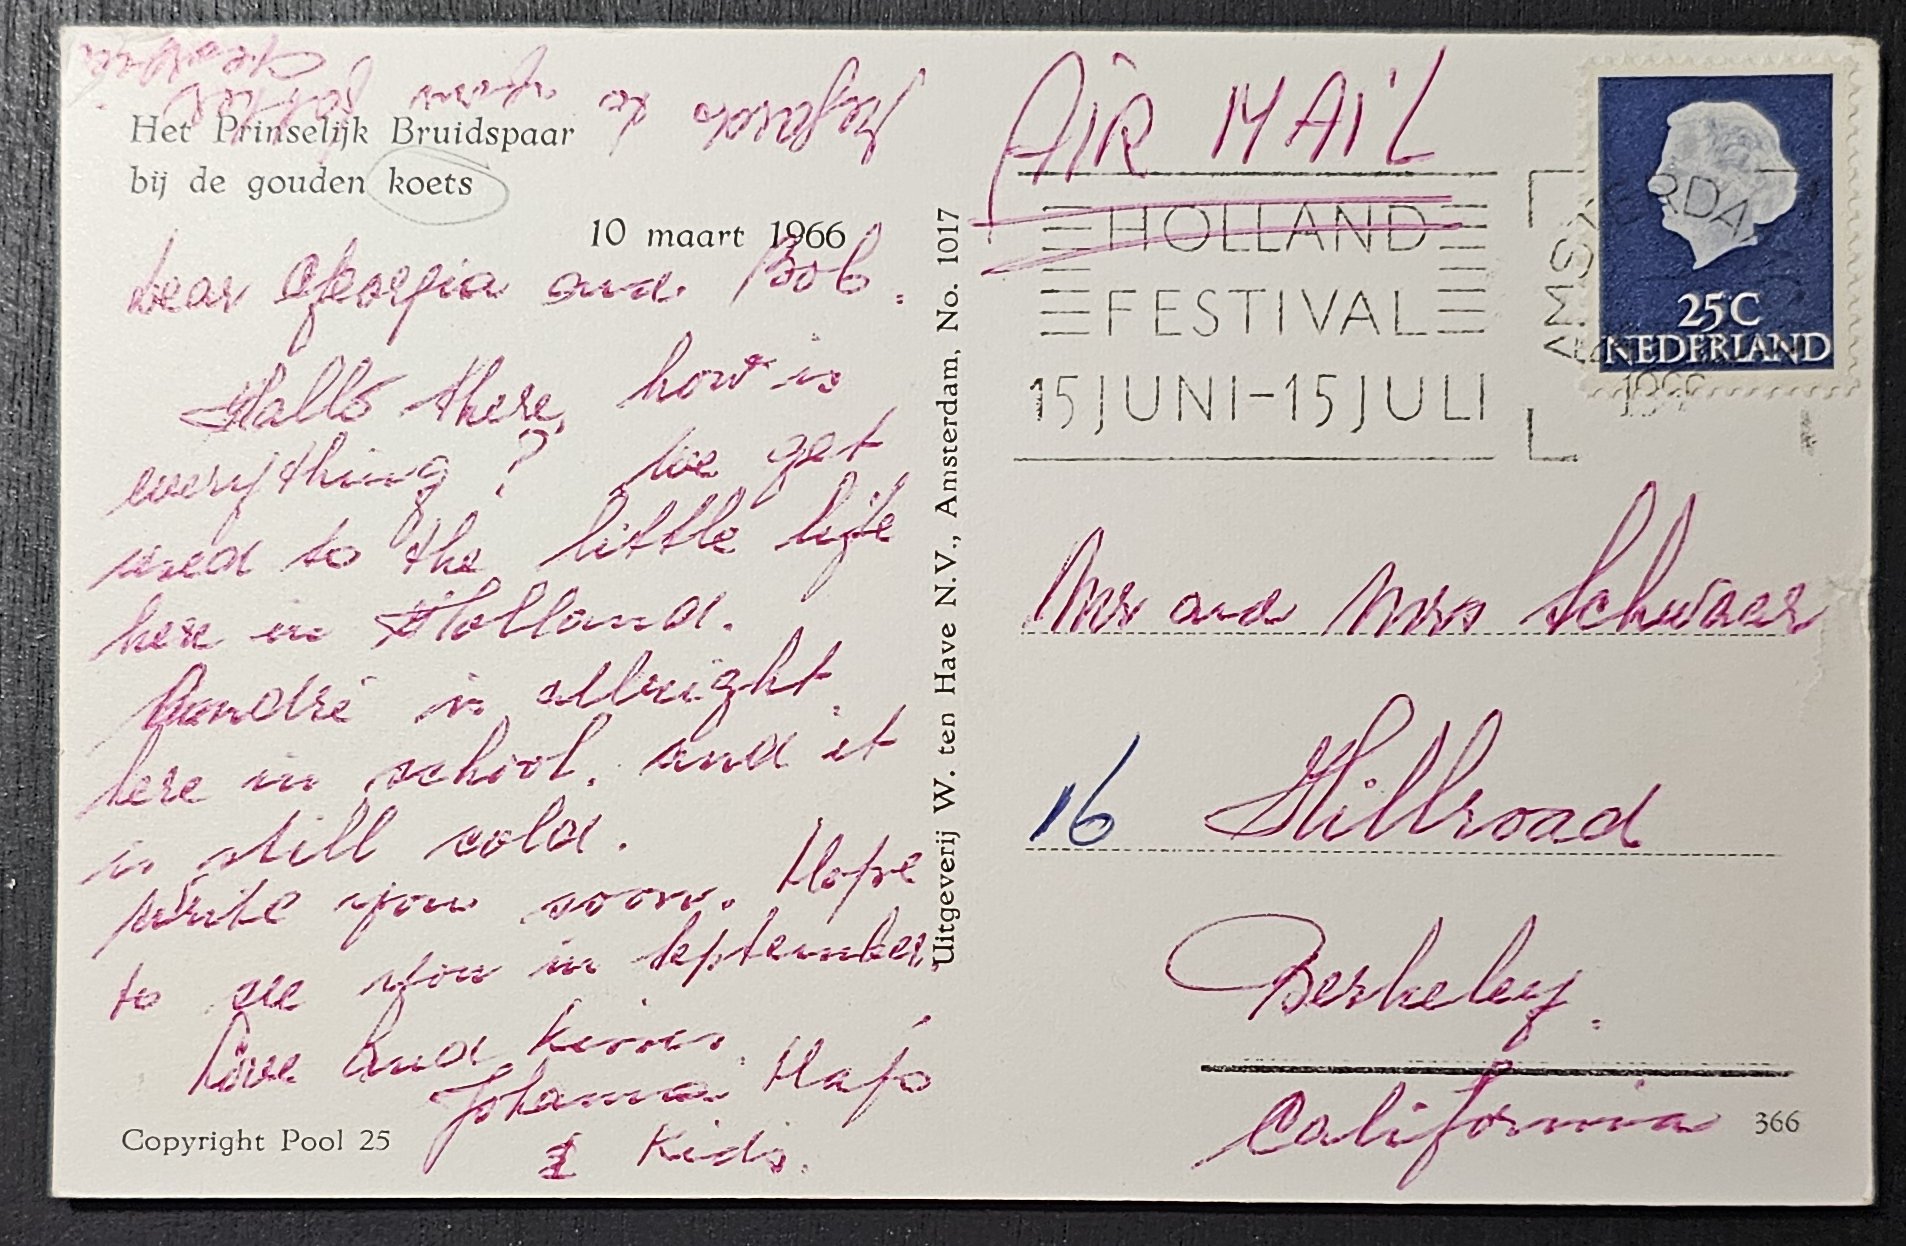 Het Prinselijk Bruidspaar
bij de gouden koets
10 maart 1966
Dear Georgia and Bob.
Hallo there, how is
everything? We get
used to the little life
here in Holland.
André is allright
here in school. And it
is still cold.
Write you soon. Hope
to see you in September.
Love And kisses.
Johanna Hajo
& Kids.
Copyright Pool 25
Uitgeverij W. ten Have N.V., Amsterdam, No. 1017
AIR MAIL
HOLLAND
FESTIVAL
15 JUNI-15 JULI
AMST RDA
1966
25 C
NEDERLAND
Mr and Mrs Schwaar
16 Hillroad
Berkeley.
California
366